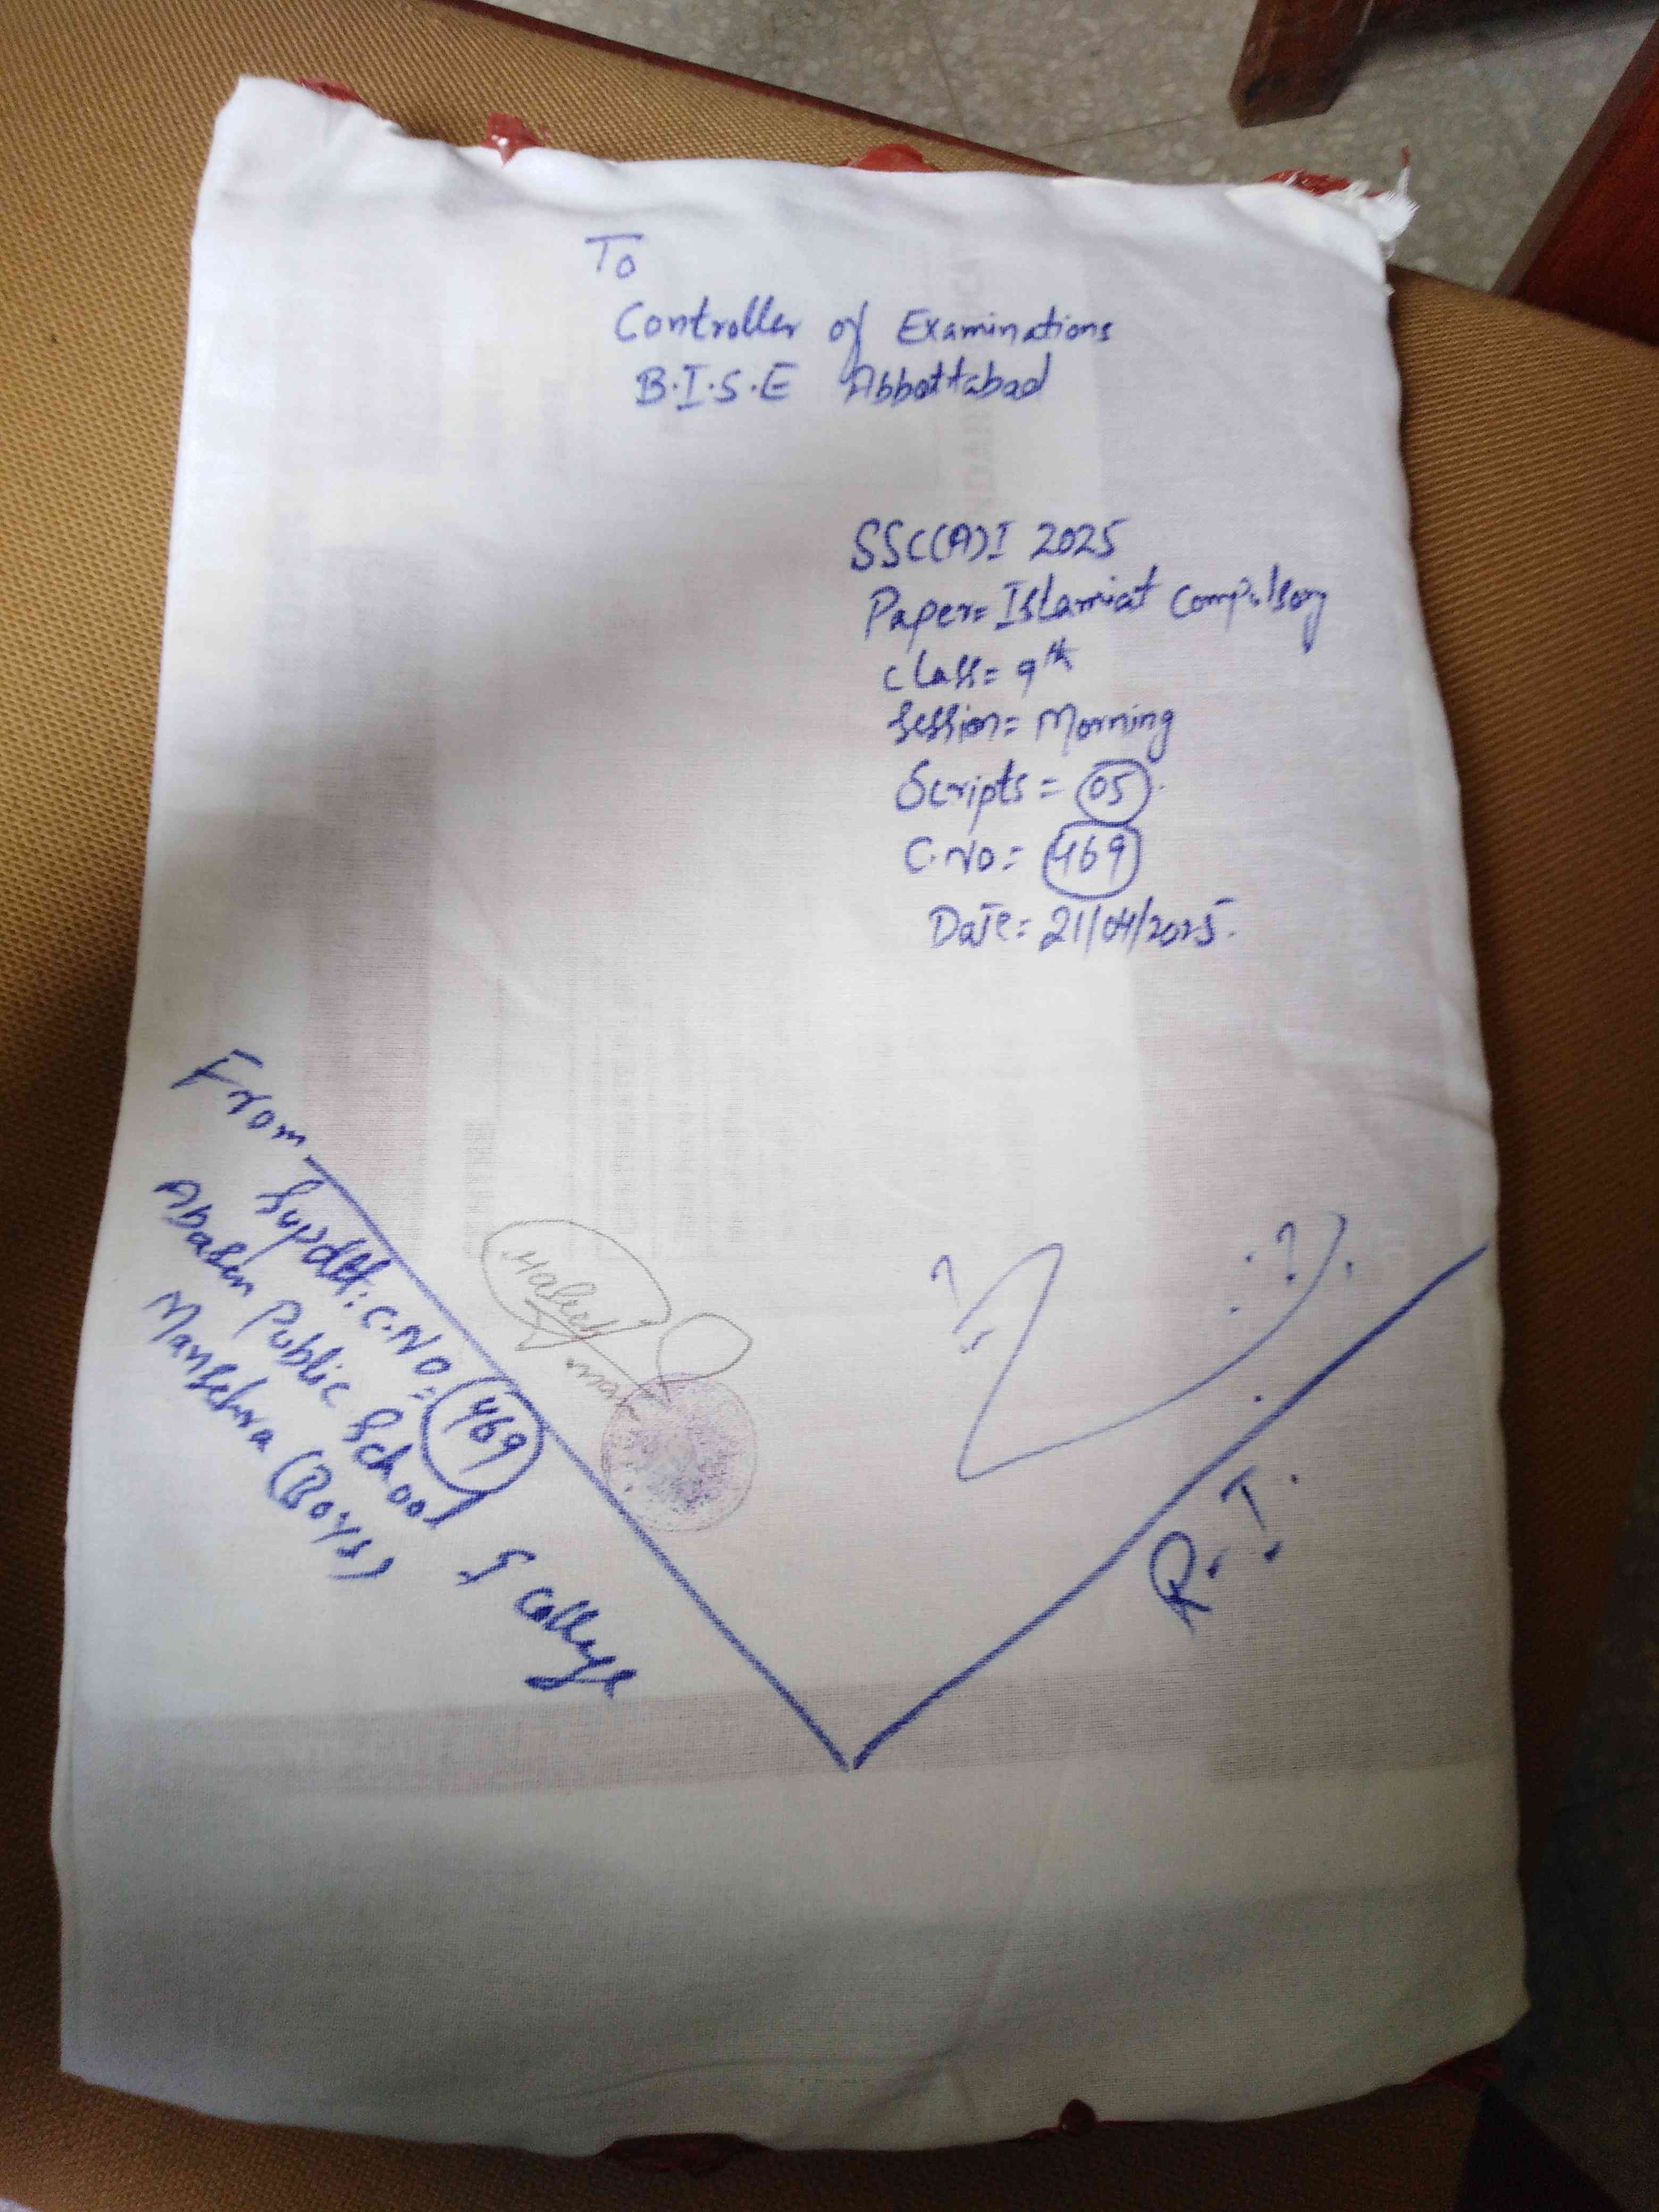 To
Controller of Examinations
B.I.S.E Abbottabad
SSC(A)I 2025
Paper= Islamiat Compulsory
Class= 9th
Session= Morning
Scripts = 05
C.No= 469
Date= 21/04/2025.
From
Supdtt: C.NO= 469
Abasen Public School & College
Mansehra (Boys)
R.T.